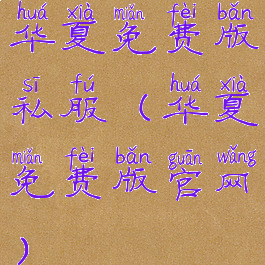 huá xià miǎn fèi bǎn
华夏免费版
sī fú huá xià
私服(华夏
miǎn fèi bǎn guān wǎng
免费版官网
)